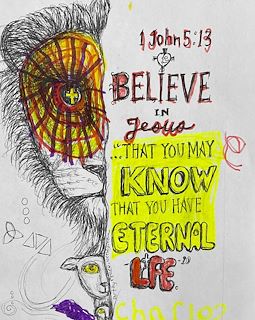 1 John 5:13
to
BELIEVE
IN
Jesus
"...THAT YOU MAY
KNOW
THAT YOU HAVE
ETERNAL
LIFE."